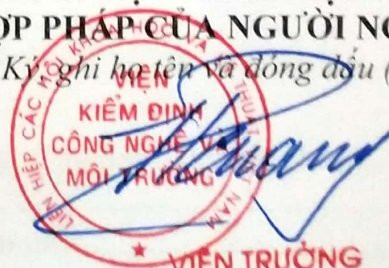 ỢP PHÁP CỦA NGƯỜI
Ký, ghi họ tên và đóng dấu (
LIÊN HIỆP CÁC HỘI KHOA HỌC VÀ KỸ THUẬT VIỆT NAM
VIỆN
KIỂM ĐỊNH
CÔNG NGHỆ VÀ
MÔI TRƯỜNG
VIỆN TRƯỞNG